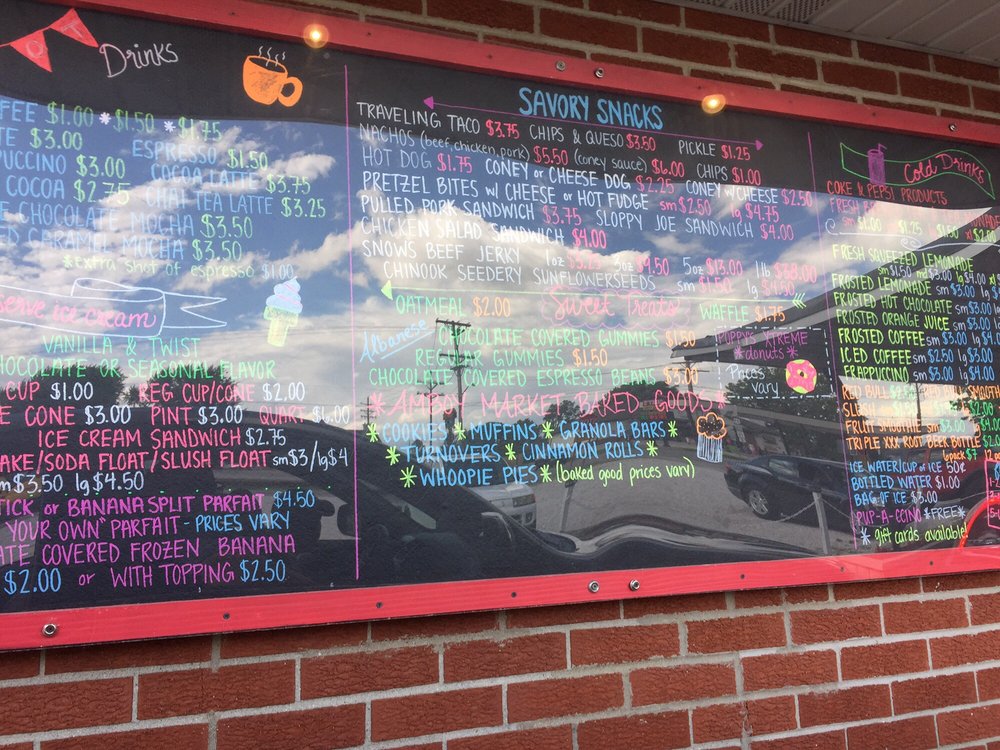 OT
Drinks
FEE $1.00 *$1.50 *$1.75
TE $3.00 ESPRESSO $1.50
PUCCINO $3.00 COCOA LATTE $3.75
COCOA $2.75 CHAI TEA LATTE $3.25
E CHOCOLATE MOCHA $3.50
ED CARAMEL MOCHA $3.50
*extra shot of espresso $1.00
serve ice cream
VANILLA & TWIST
CHOCOLATE OR SEASONAL FLAVOR
CUP $1.00 REG CUP/CONE $2.00
E CONE $3.00 PINT $3.00 QUART
ICE CREAM SANDWICH $2.75
AKE/SODA FLOAT/SLUSH FLOAT sm $3/lg $4
m $3.50 lg $4.50
TICK or BANANA SPLIT PARFAIT $4.50
YOUR OWN" PARFAIT - PRICES VARY
ATE COVERED FROZEN BANANA
$2.00 or WITH TOPPING $2.50
SAVORY SNACKS
TRAVELING TACO $3.75 CHIPS & QUESO $3.50 PICKLE $1.25
NACHOS (beef, chicken, pork) $5.50 (coney sauce) $6.00 CHIPS $1.00
HOT DOG $1.75 CONEY or CHEESE DOG $2.25 CONEY w/CHEESE $2.50
PRETZEL BITES w/ CHEESE or HOT FUDGE sm $2.50 lg $4.75
PULLED PORK SANDWICH $3.75 SLOPPY JOE SANDWICH $4.00
CHICKEN SALAD SANDWICH $4.00
SNOWS BEEF JERKY 1oz 3oz $9.50 5oz $13.00 1lb $38.00
CHINOOK SEEDERY SUNFLOWERSEEDS sm $1.50 lg
Sweet Treats
OATMEAL $2.00 WAFFLE $1.75
Albanese
CHOCOLATE COVERED GUMMIES $1.50
REGULAR GUMMIES $1.50
CHOCOLATE COVERED ESPRESSO BEANS $3.00
POPPY'S XTREME
*donuts*
Prices
vary
*AMBOY MARKET BAKED GOODS*
*COOKIES *MUFFINS *GRANOLA BARS*
*TURNOVERS *CINNAMON ROLLS*
*WHOOPIE PIES* (baked good prices vary)
Cold Drinks
COKE & PEPSI PRODUCTS
FRESH
$1.00 $1.25 $1.50 $2.00
FRESH SQUEEZED LEMONADE
sm $1.50 md $3.00 lg $4.00
FROSTED LEMONADE sm $3.00 lg $4
FROSTED HOT CHOCOLATE sm $3.00
FROSTED ORANGE JUICE sm $3.00
FROSTED COFFEE sm $3.00 lg $4.0
ICED COFFEE sm $2.50 lg $3.00
FRAPPUCCINO sm $3.00 lg $4.00
RED BULL RED BULL SMOOTH
SLUSH
FRUIT SMOOTHIE sm $3.00 $4.00
TRIPLE XXX ROOT BEER BOTTLE
6pack $7 12
ICE WATER/CUP of ICE 50¢
BOTTLED WATER $1.00
BAG of ICE $3.00
PUP-A-CCINO *FREE*
* gift cards available!